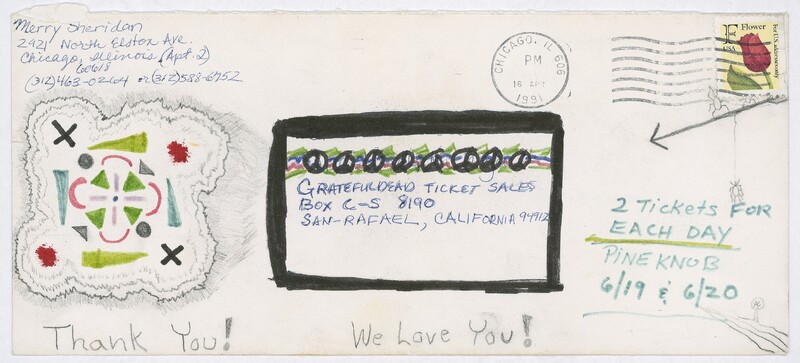 Merry Sheridan
2921 North Elston Ave.
Chicago, Illinois (Apt. 2)
60618
(312)463-0264 or (312)588-6752
CHICAGO, IL 606
PM
16 APR
1991
F Flower
USA
For U.S. addresses only
GRATEFULDEAD TICKET SALES
BOX C-S 8190
SAN-RAFAEL, CALIFORNIA 94912
2 Tickets FOR
EACH DAY
PINE KNOB
6/19 & 6/20
Thank You!
We Love You!